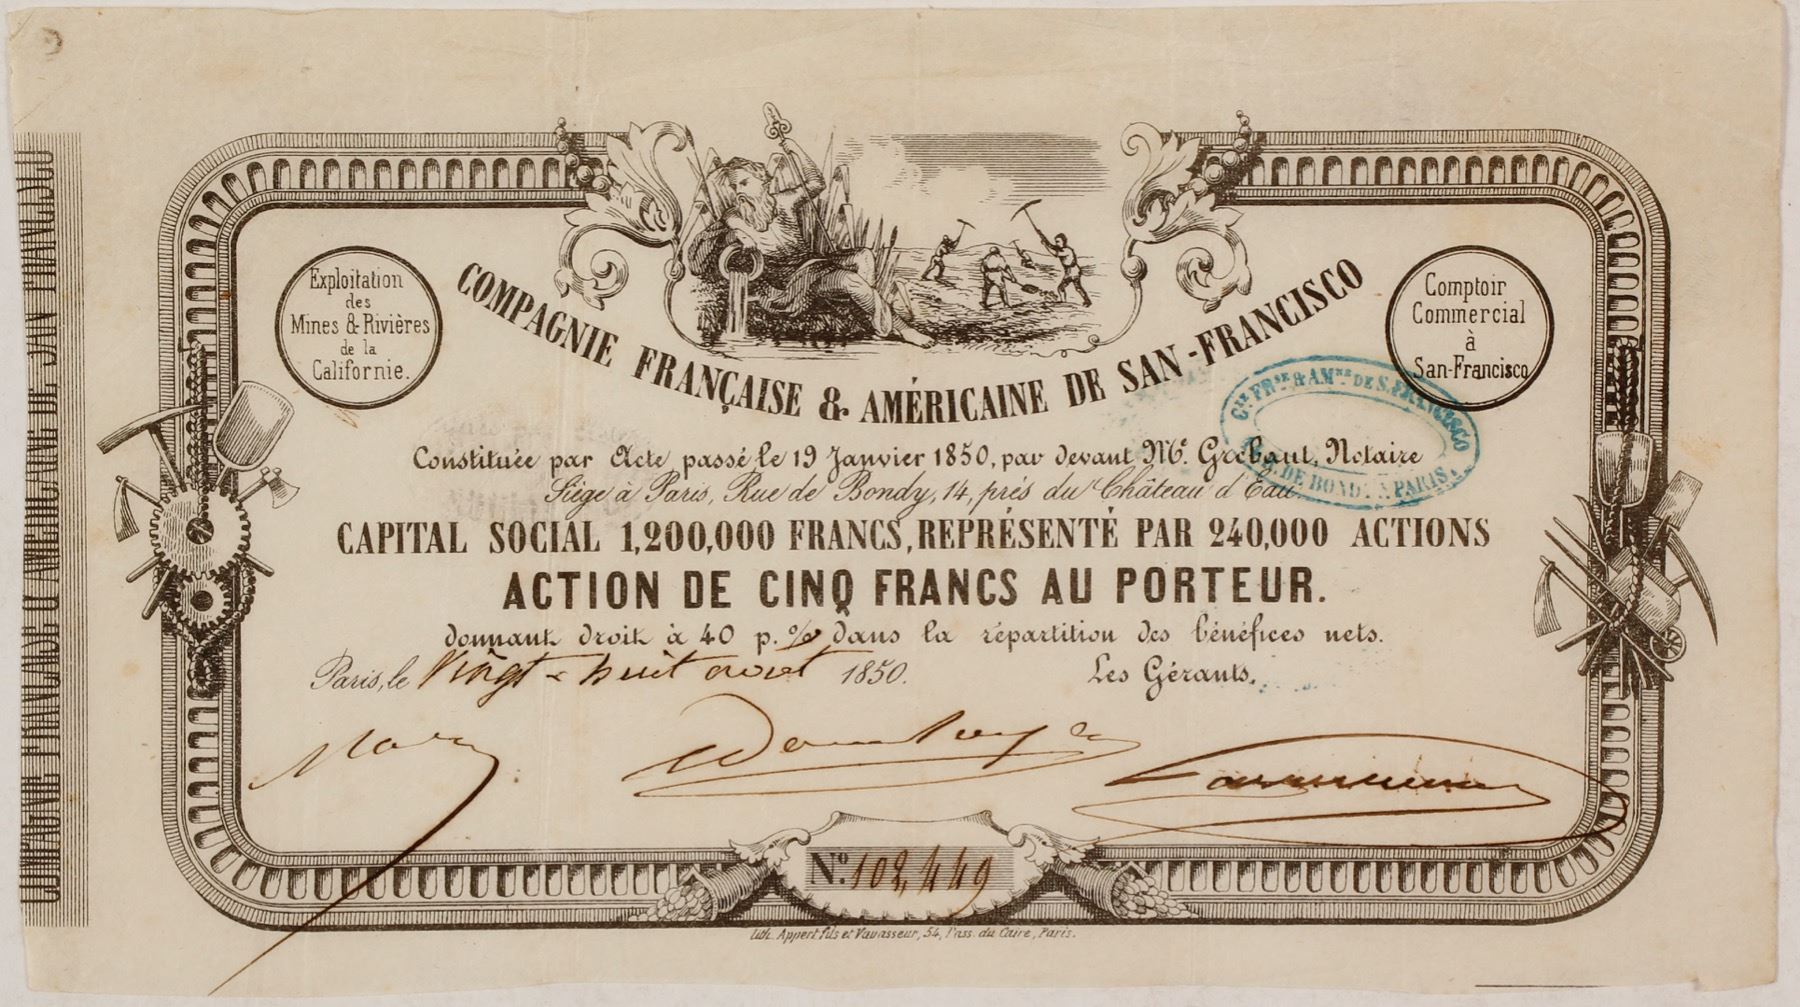 COMPAGNIE FRANÇAISE & AMÉRICAINE DE SAN-FRANCISCO
Exploitation
des
Mines & Rivières
de la
Californie.
Comptoir
Commercial
à
San-Francisco
COMPAGNIE FRANÇAISE & AMÉRICAINE DE SAN-FRANCISCO
Cie FRse & AMnce DE S. FRANCISCO
DE BONDY PARIS
Constituée par Acte passé le 19 Janvier 1850, par devant Me. Grébaut, Notaire
Siège à Paris, Rue de Bondy, 14, près du Château d'Eau.
CAPITAL SOCIAL 1,200,000 FRANCS, REPRÉSENTÉ PAR 240,000 ACTIONS
ACTION DE CINQ FRANCS AU PORTEUR.
donnant droit à 40 p.% dans la répartition des bénéfices nets.
Paris, le Vingt-huit août 1850.
Les Gérants.
No. 108,449
Lith. Appert fils et Vavasseur, 54, Pass. du Caire, Paris.